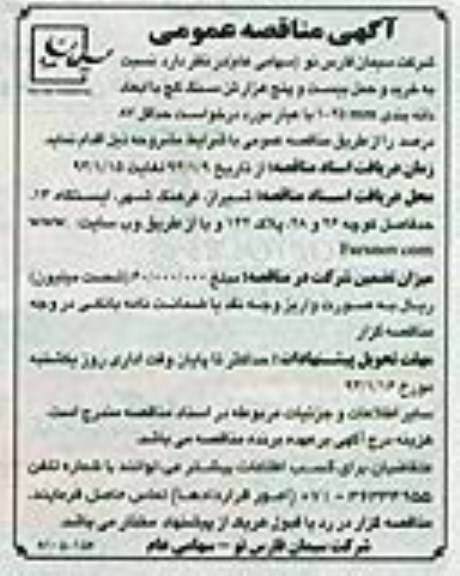 آگهی مناقصه عمومی
شرکت سیمان فارس نو (سهامی عام) در نظر دارد نسبت
به خرید و حمل بیست و پنج هزار تن سنگ گچ با ابعاد
دانه بندی 0-25 mm با عیار مورد درخواست حداقل ۸۲
درصد را از طریق مناقصه عمومی با شرایط مشروحه ذیل اقدام نماید.
زمان دریافت اسناد مناقصه: از تاریخ ۹۴/۱/۹ لغایت ۹۴/۱/۱۵
محل دریافت اسناد مناقصه: شیراز، فرهنگ شهر، ایستگاه ۱۳،
حدفاصل کوچه ۲۶ و ۲۸، پلاک ۱۲۲ و یا از طریق وب سایت: www.
Farsnov.com
میزان تضمین شرکت در مناقصه: مبلغ ۶۰/۰۰۰/۰۰۰ (شصت میلیون)
ریال به صورت واریز وجه نقد یا ضمانت نامه بانکی در وجه
مناقصه گزار
مهلت تحویل پیشنهادات: حداکثر تا پایان وقت اداری روز یکشنبه
مورخ ۹۴/۱/۱۶
سایر اطلاعات و جزئیات مربوطه در اسناد مناقصه مندرج است.
هزینه درج آگهی بر عهده برنده مناقصه می باشد.
متقاضیان برای کسب اطلاعات بیشتر می توانند با شماره تلفن
۳۶۳۳۳۹۵۵ - ۰۷۱ (امور قراردادها) تماس حاصل فرمایند.
مناقصه گزار در رد یا قبول هریک از پیشنهاد مختار می باشد.
شرکت سیمان فارس نو – سهامی عام